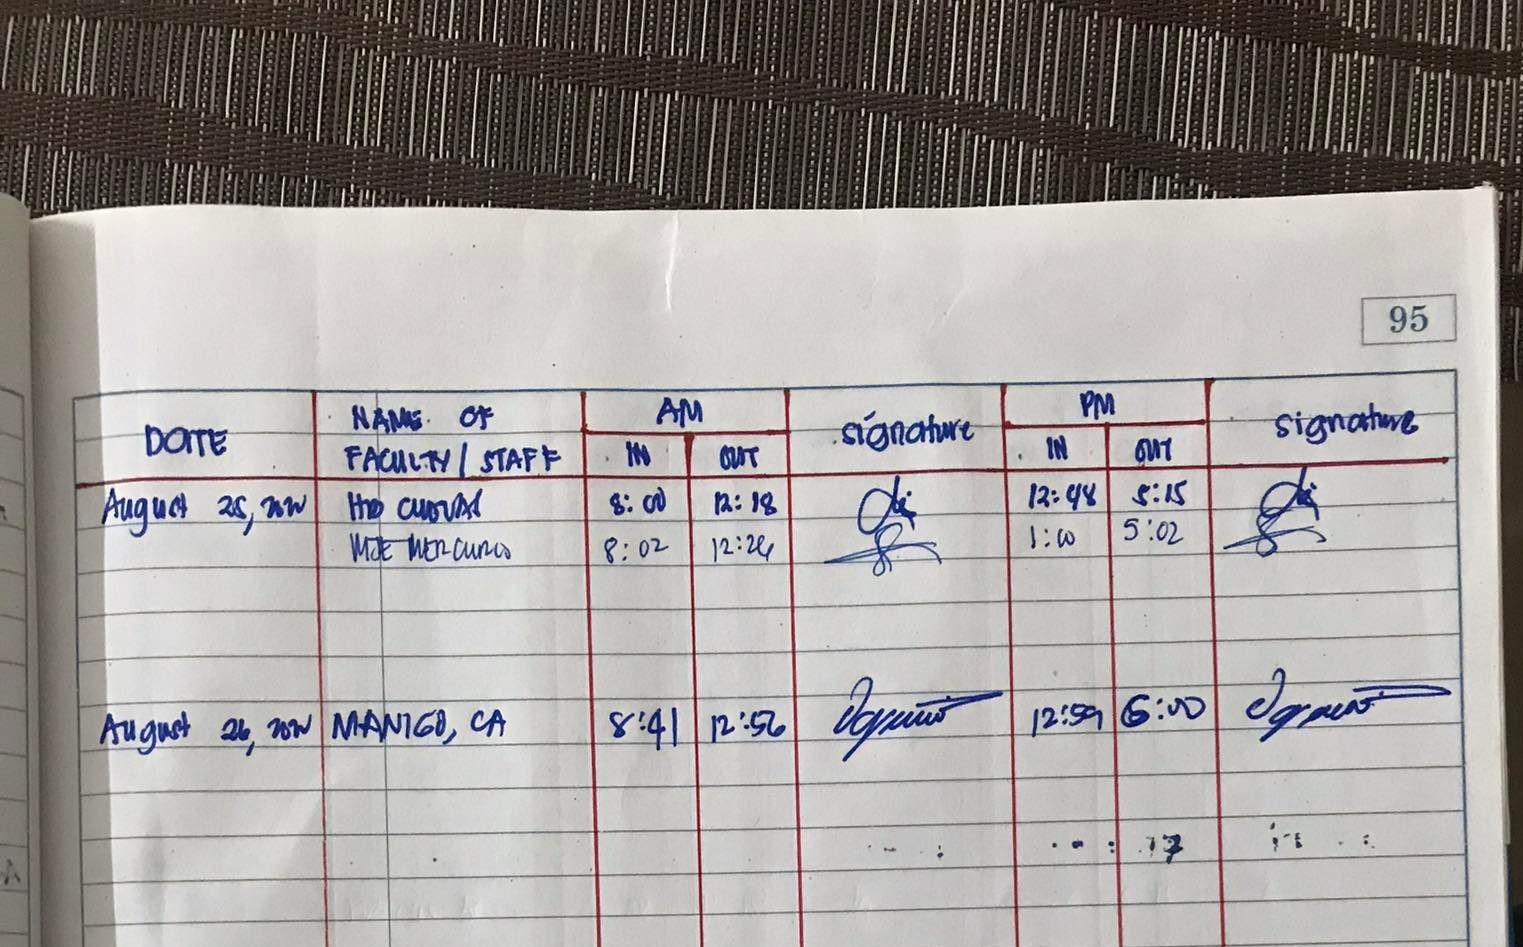 95
DATE NAME OF FACULTY / STAFF AM IN OUT signature PM IN OUT signature
August 25, 8:00 12:18 12:48 5:15
MJE MERCURIO 8:02 12:26 1:00 5:02
August 26, MANIGO, CA 8:41 12:56 12:59 5:00